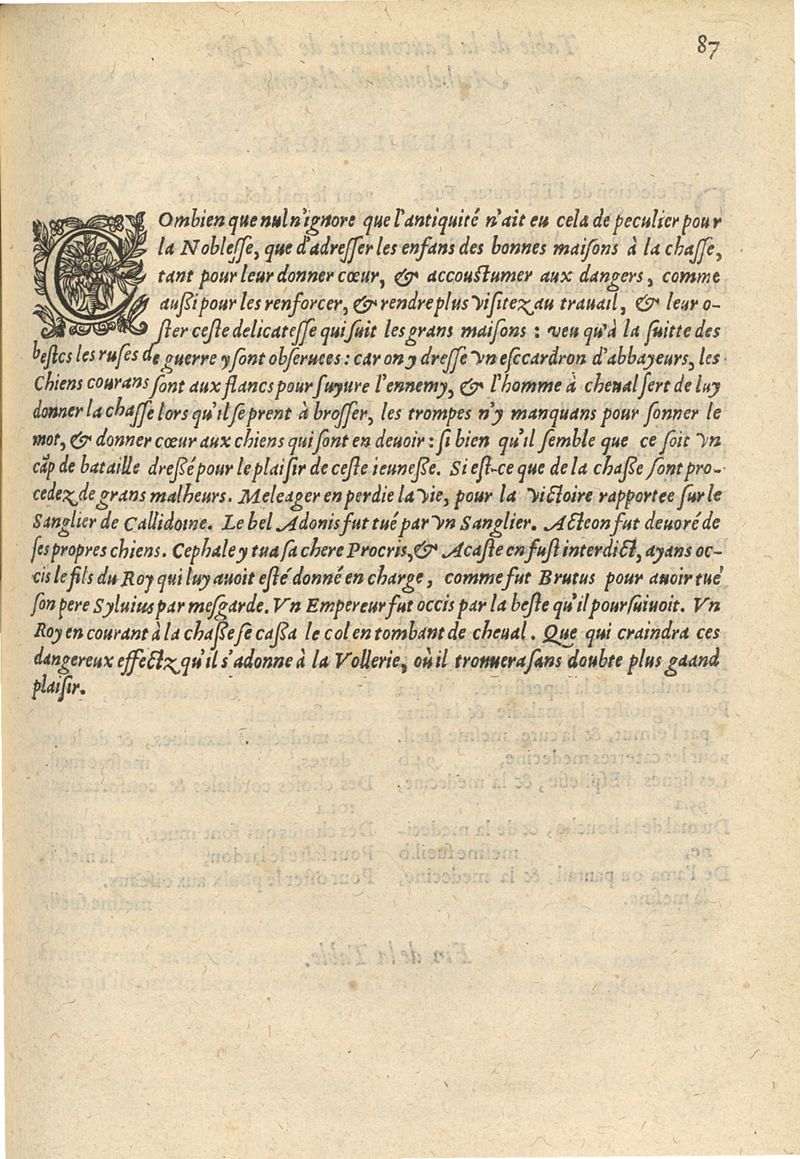 87
COmbien que nul n'ignore que l'antiquité n'ait eu cela de peculier pour
la Noblesse, que d'adresser les enfans des bonnes maisons à la chasse,
tant pour leur donner cœur, & accoustumer aux dangers, comme
aussi pour les renforcer, & rendre plus visitez au trauail, & leur o-
ster ceste delicatesse qui suit les grans maisons : veu qu'à la suitte des
bestes les ruses de guerre y sont obseruees : car on y dresse vn esccardron d'abbayeurs, les
Chiens courans sont aux flancs pour suyure l'ennemy, & l'homme à cheual sert de luy
donner la chasse lors qu'il se prent à brosser, les trompes n'y manquans pour sonner le
mot, & donner cœur aux chiens qui sont en deuoir : si bien qu'il semble que ce soit vn
cāp de bataille dressé pour le plaisir de ceste ieunesse. Si est-ce que de la chasse sont pro-
cedez de grans malheurs. Meleager en perdie la vie, pour la victoire rapportee sur le
Sanglier de Callidoine. Le bel Adonis fut tué par vn Sanglier. Acteon fut deuoré de
ses propres chiens. Cephale y tua sa chere Procris, & Acaste en fust interdict, ayans oc-
cis le fils du Roy qui luy auoit esté donné en charge, comme fut Brutus pour auoir tué
son pere Syluius par mesgarde. Vn Empereur fut occis par la beste qu'il poursuiuoit. Vn
Roy en courant à la chasse se cassa le col en tombant de cheual. Que qui craindra ces
dangereux effectz qu'il s'adonne à la Vollerie, où il trouuera sans doubte plus gaand
plaisir.